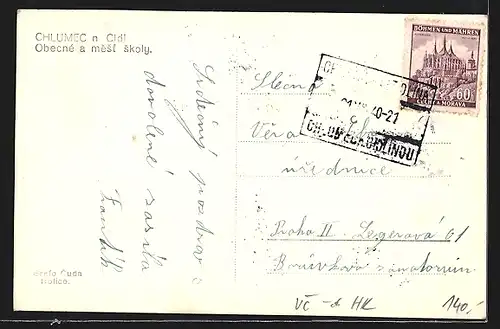 CHLUMEC n Cidl
Obecné a měšť školy.
Srdečný pozdrav s
dovolené zasílá
František
Slečna
Věra
úřednice
Praha II. Legerova 61
Borůvkovo sanatorium.
BÖHMEN UND MÄHREN
60
ČECHY A MORAVA
40-21
CHLUMEC N CIDLINOU
Čuda
Holice.
VČ - HK
140,-